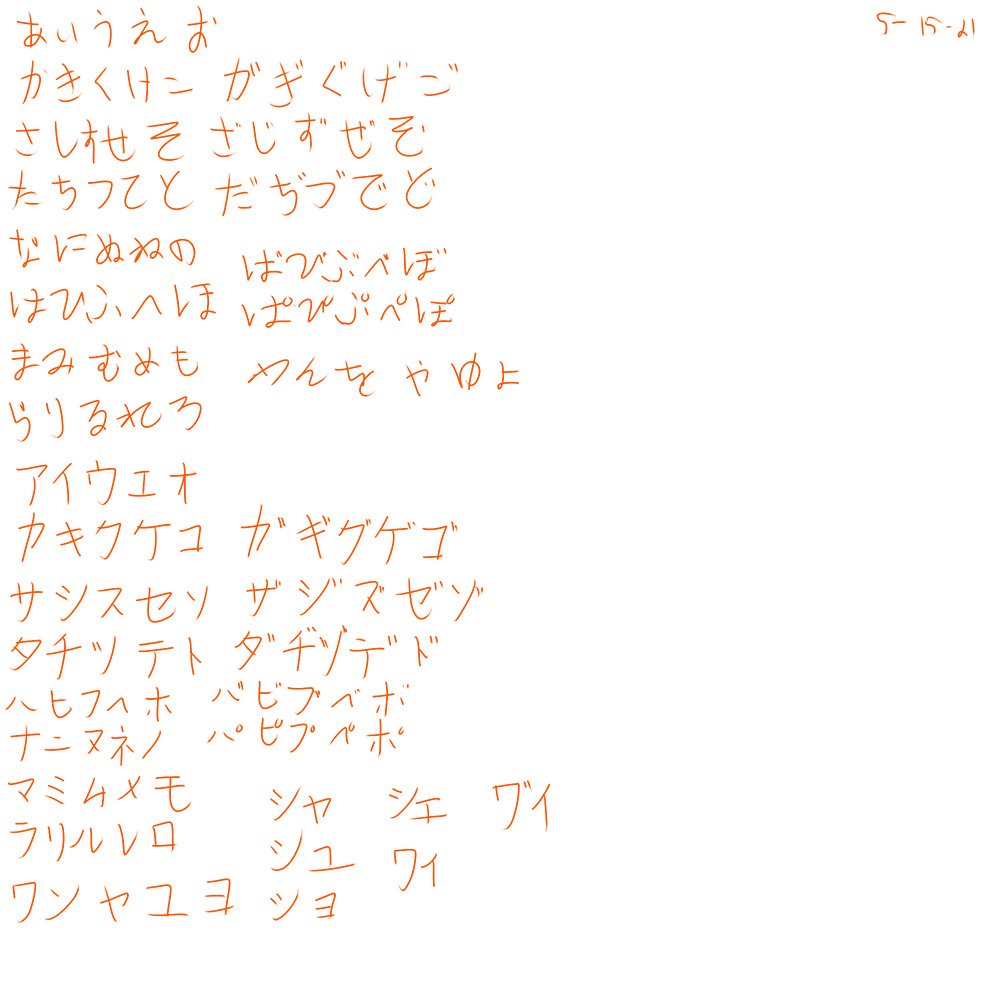 あいうえお
5-15-21
かきくけこ がぎぐげご
さしすせそ ざじずぜぞ
たちつてと だぢづでど
なにぬねの
ばびぶべぼ
はひふへほ ぱぴぷぺぽ
まみむめも
わんを やゆよ
らりるれろ
アイウエオ
カキクケコ ガギグゲゴ
サシスセソ ザジズゼゾ
タチツテト ダヂヅデド
ハヒフヘホ バビブベボ
ナニヌネノ パピプペポ
マミムメモ
シャ シェ ヷイ
ラリルレロ
シュ ワイ
ワンヤユヨ ショ